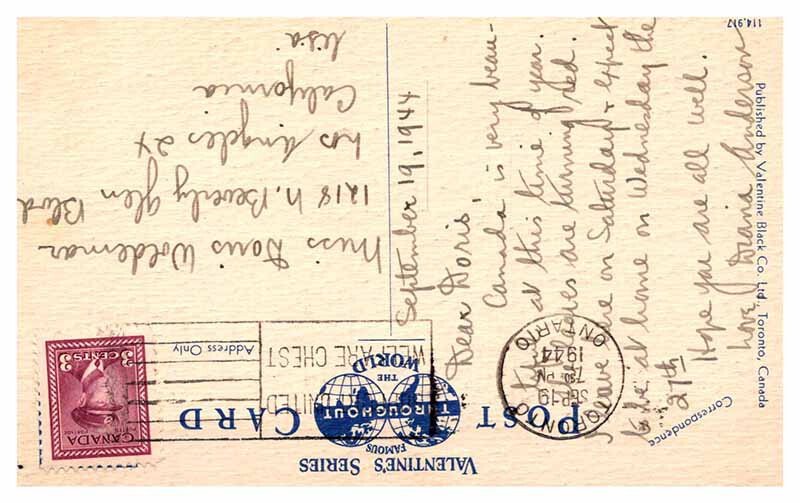 VALENTINE'S SERIES
FAMOUS THROUGHOUT THE WORLD
POST CARD
Correspondence
Address Only
CANADA
POSTES POSTAGE
3 CENTS 3
UNITED
WELFARE CHEST
TORONTO
SEP 19
7 30 PM
1944
ONTARIO
September 19, 1944
Dear Doris,
Canada is very beau-
tiful at this time of year.
The leaves are turning red.
I leave here on Saturday & expect
to be at home on Wednesday the
27th
Hope you are all well.
Love, Diana Anderson
Miss Doris Woldemar
1218 N. Beverly Glen Blvd
Los Angeles 24
California
USA
Published by Valentine Black Co. Ltd., Toronto, Canada
114,917